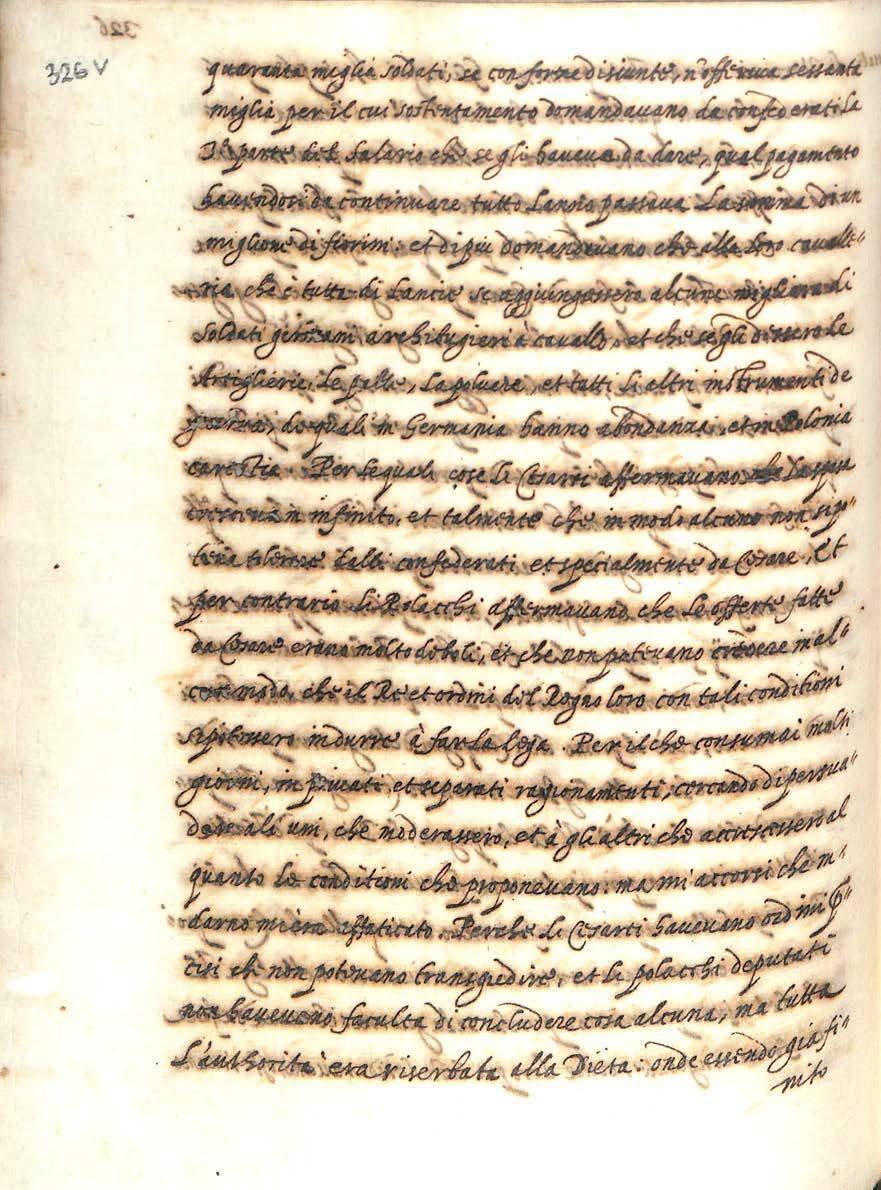 326
326 V
quaranta miglia soldati, se con forze disiunte, n'offeriva sessanta
miglia per il cui sostentamento domandavano da confederati la
3ª parte del salario che se gli haveva da dare, qual pagamento
havendosi da continuare tutto l'anno passava la somma di un
miglione di fiorini: et di piu domandavano che alla loro cavalle"
ria che è tutta di Lancie se aggiungessero alcune migliara di
soldati germani archibugieri à cavallo, et che se gli dessero le
Artiglierie, le palle, la polvere, et tutti li altri instrumenti de
guerra, de quali in Germania hanno abondanza, et in Polonia
carestia. Per le quali cose li Cesarei affermavano che la spesa
cresceva in infinito, et talmente che in modo alcuno non si po"
teva tolerare dalli confederati, et specialmente da Cesare, Et
per contrario li Polacchi affermavano, che le offerte fatte
da Cesare erano molto deboli, et che non potevano credere in al"
cun modo, che il Re et ordini del Regno loro con tali conditioni
si potessero indurre à far la lega. Per il che consumai molti
giorni, in privati et separati ragionamenti, cercando di persua"
dere a li uni, che moderassero, et à gli altri che accrescessero al
quanto le conditioni che proponevano: ma mi accorsi che in"
darno m'ero affaticato. Perche li Cesarei havevano ordini p"
cisi che non potevano transgredire, et li polacchi deputati
non havevano faculta di concludere cosa alcuna, ma tutta
l'authorita era riserbata alla Dieta: onde essendo già fi"
nito